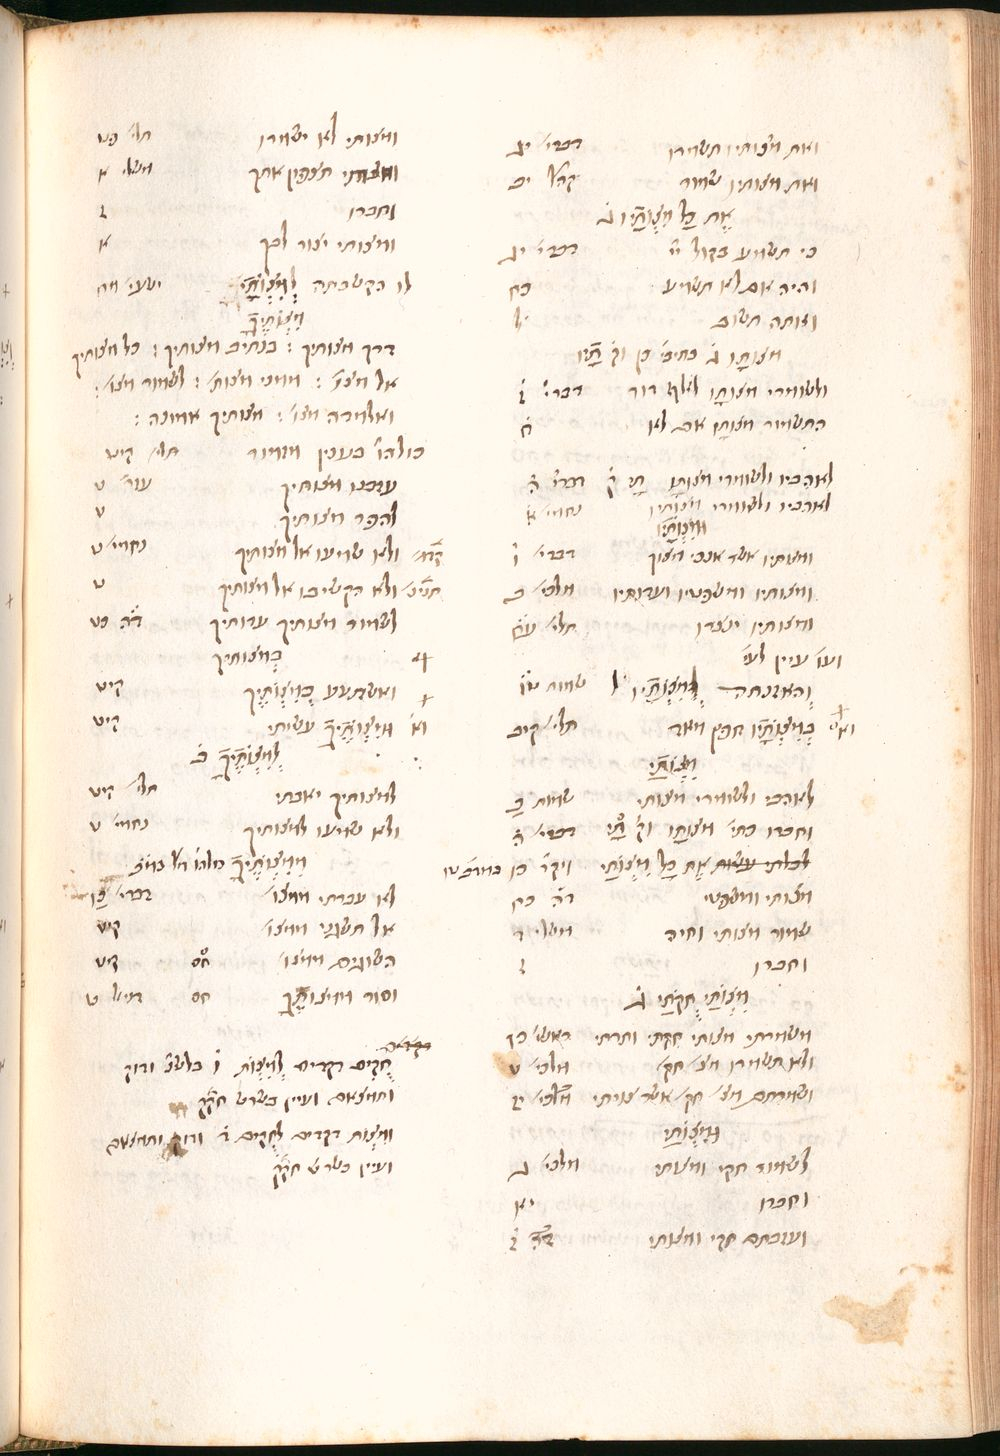 ואת מצותיו תשמרו דברי׳ יג
ואת מצותיו שמור קהל׳ יב
אֶת כָל מִצְוֹתָיו ג̇
כי תשמע בקול יי׳ דברי׳ יג
והיה אם לא תשמע כח
ואתה תשוב ל׳
מצותָו ג̇ כתיבי׳ כן וק̇ תָיו
ולשמרי מצותָו לאלף דור דברי׳ ז̇
התשמור מצותָו אם לא ח̇
לאהביו ולשמרי מצותָו תָי ק̇ דברי׳ ה̇
לאהביו ולשומרי מצותיו נחמי׳ א
וּמִצְוֹתָיו
ומצותיו אשר אנכי מצוך דברי׳ ו̇
ומצותיו ומשפטיו ועדותיו מלכי׳ ב
ומצותיו ינצרו תלי׳ עח
ועו׳ עיין לעי׳
וְהאזנתה לְמִצְוֹתָיו ל̇ שמות טו̇
בְמִצְוֹתָיו חפץ מאד תלי׳ קיב
מִצְוֹתַי
לאהבי ולשומרי מצותי שמות כ̇
וחברו כתי׳ מצותָו וק̇ תָי דברי׳ ה̇
לבלתי עשות אֶת כָל מִצְוֹתַי ויק׳ כו
מצותי ומשפטי דה̇ כח
שמור מצותי וחיה משלי ד
וחברו ז
מִצְוֹתַי חֻקֹתַי ג̇
משמרתי מצותי חקתי ותרתי ראשי׳ כו
ולא תשמרו מצ׳ חק׳ מלכי׳ ט
ושמרתם מצ׳ חק׳ אשר צויתי מלכי׳ יז
וּמִצְוֹתַי
לשמור חקי ומצותי מלכי׳ ג
וחברו יא
ועזבתם חקי ומצותי דה̇ ז̇
ומצותי לא ישמרו תלי׳ פט
ומצותי תצפון אתך משלי א
וחברו ז
ומצותי יצור לבך א
לו הקשבתה לְמִצְוֹתָי ישעי׳ מח
מִצְוֹתֶיךָ
דרך מצותיך : בנתיב מצותיך : כל מצותיך
אל מצו׳ : ממני מצות׳ : לשמור מצו׳ :
ואלמדה מצו׳ : מצותיך אמונה :
כולהו׳ בענין מזמור תלי׳ קיט
עזבנו מצותיך עזר׳ ט
להפר מצותיך ט
ולא שמעו אל מצותיך נחמי׳ ט
ולא הקשיבו אל מצותיך ט
לשמור מצותיך עדותיך דה̇ כט
בְמצותיך
ואשתעשע בְמִצְוֹתֶיךָ קיט
ומִצְוֹתֶיךָ עשיתי קיט
לְמִצְוֹתֶיךָ ב̇
למצותיך יאבתי תלי׳ קיט
ולא שמעו למצותיך נחמי׳ ט
מִמִצְוֹתֶיךָ
לא עברתי ממצו׳ דברי׳ כו
אל תשגני ממצו׳ קיט
השוגים ממצו׳ חס̇ קיט
וסור ממִצוֹתֶךָ חס דניאל ט
חֻקִים קדמים לְמִצְוֹת ו̇
ותמצאם ועיין בשרש חקק
ומצות קדמים לְחֻקִים ודוק ותמצאם
ועיין בשרש חקק